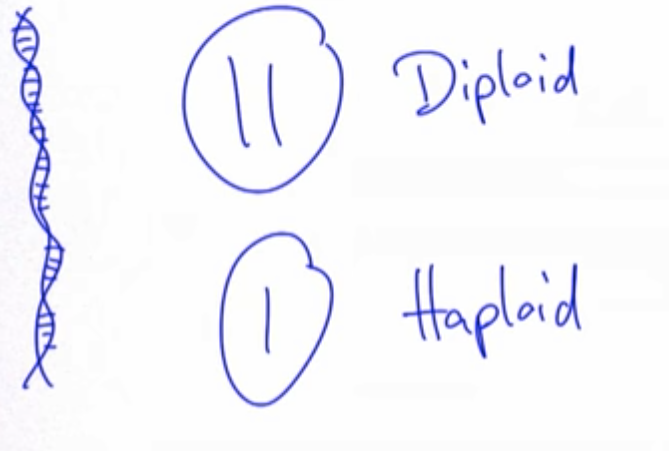 Diploid
Haploid